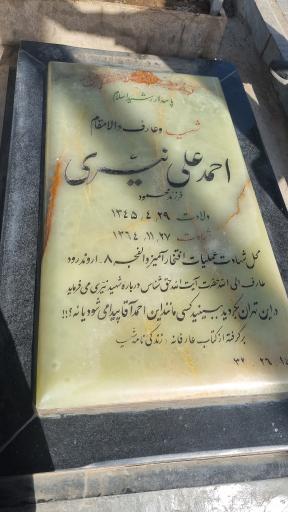 پاسدار رشید اسلام
شهید و عارف والامقام
احمد علی نیری
فرزند محمود
ولادت ۱۳۴۵.۴.۲۹
شهادت ۱۳۶۴.۱۱.۲۷
محل شهادت عملیات افتخار آمیز والفجر ۸ - اروندرود
عارف الی الله حضرت آیت الله حق شناس درباره شهید نیری می فرماید
در این تهران بگردید ببینید کسی مانند این احمد آقا پیدا می شود یا نه؟!!
برگرفته از کتاب عارفانه: زندگی نامه شهید
۳۲.۲۶